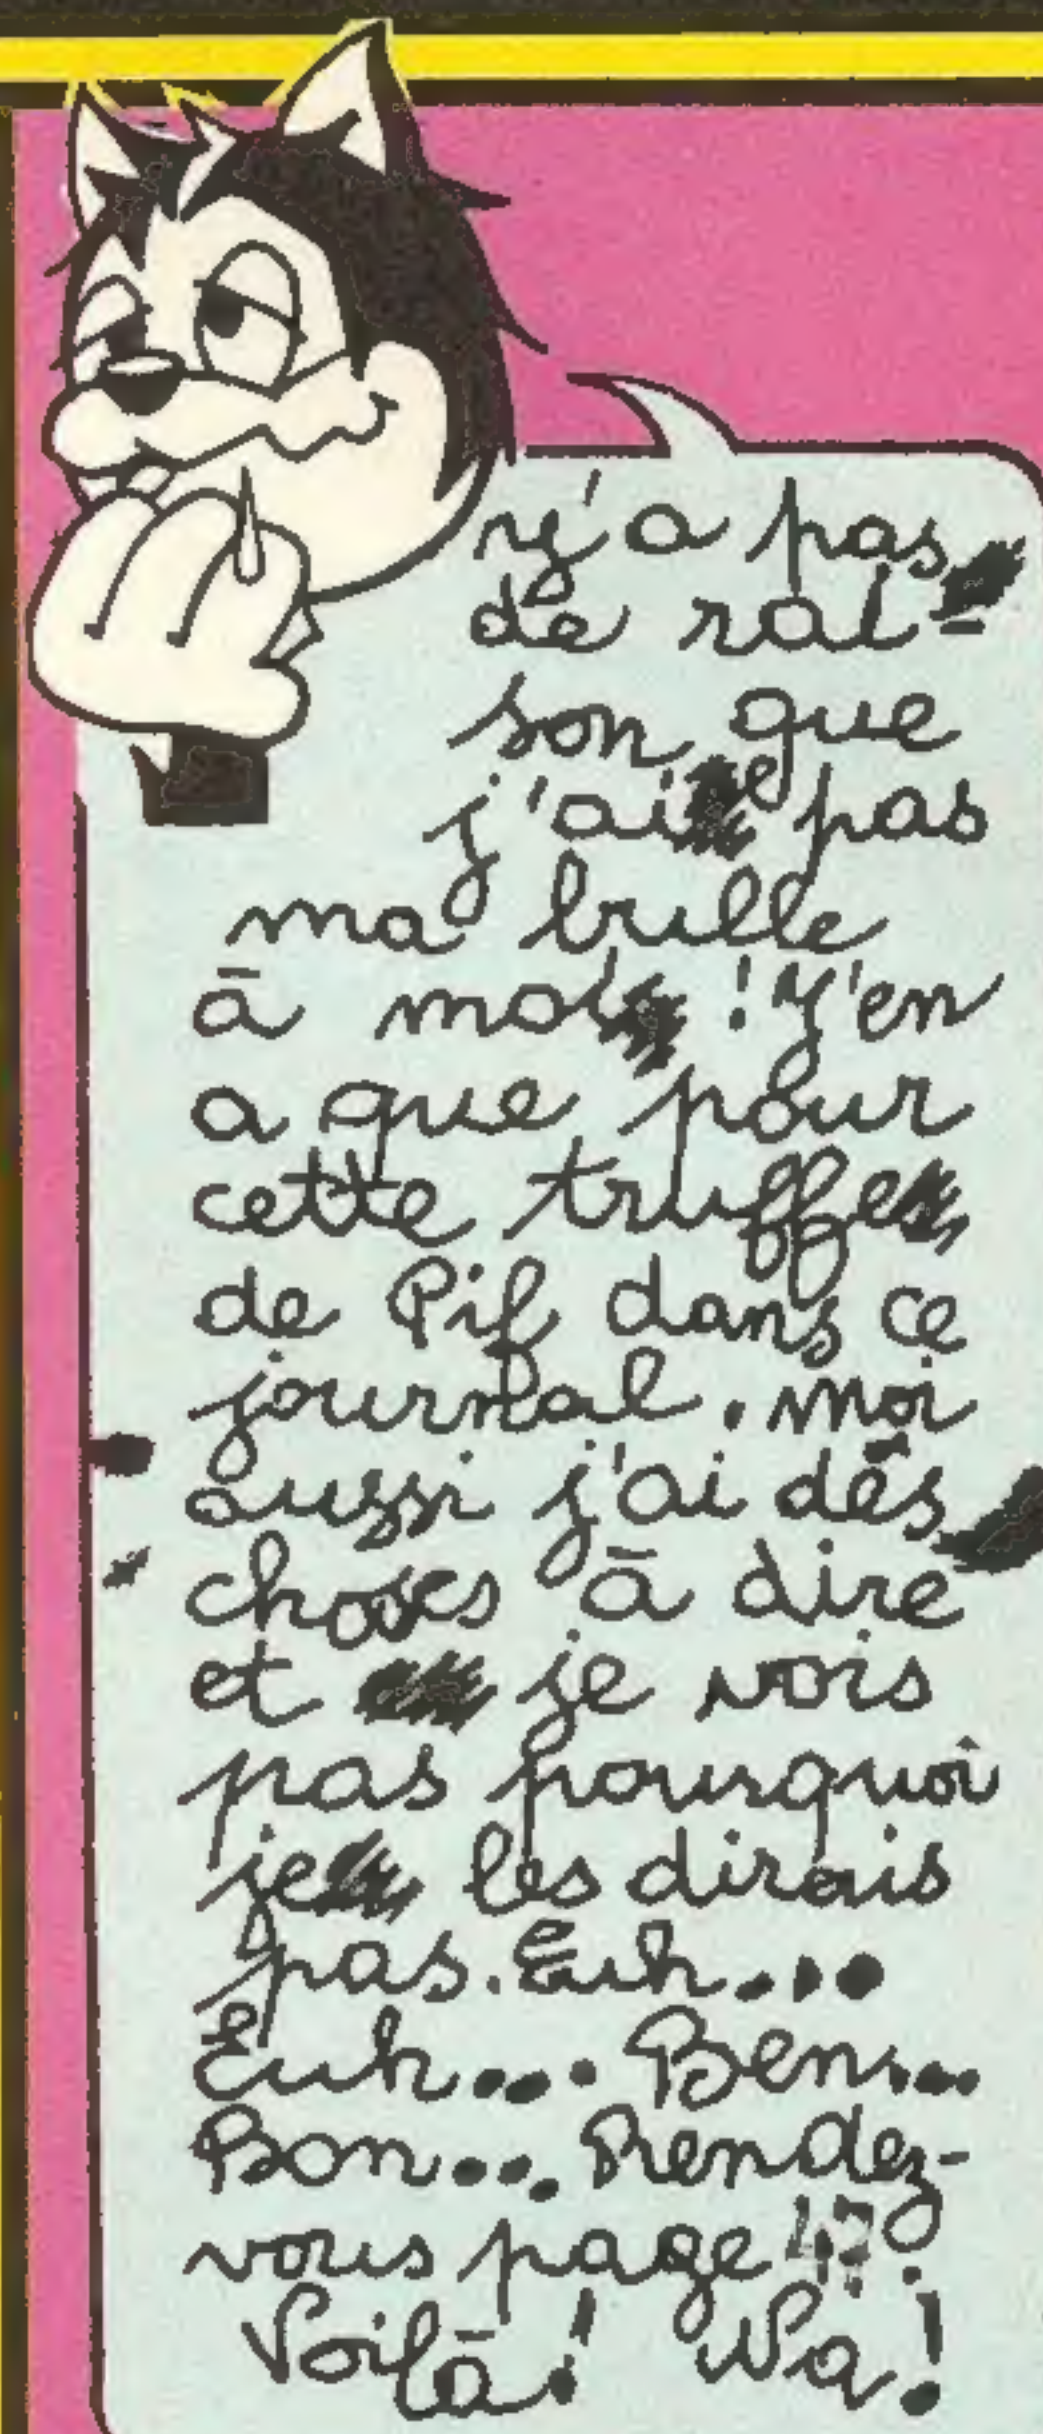 y'a pas
de rai-
son que
j'aie pas
ma bulle
à moi ! Y'en
a que pour
cette truffe
de Pif dans ce
journal. moi
aussi j'ai des
choses à dire
et je vois
pas pourquoi
je les dirais
pas. Euh...
Euh... Ben...
Bon... Rendez-
vous page
Voilà ! Na !